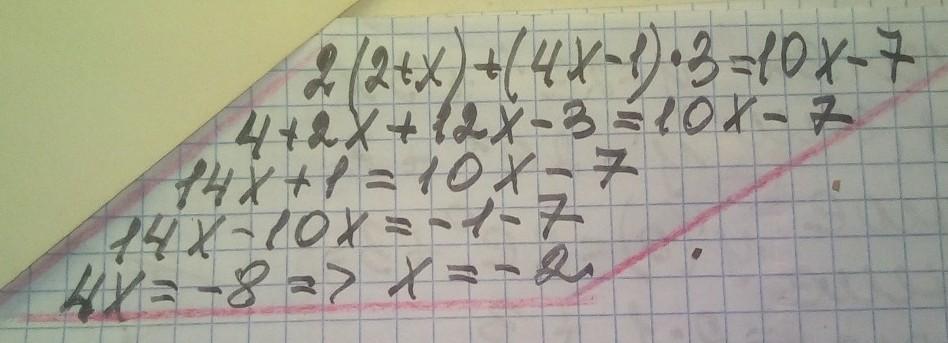 2(2+x)+(4x-1)·3=10x-7
4+2x+12x-3=10x-7
14x+1=10x-7
14x-10x=-1-7
4x=-8=>x=-2